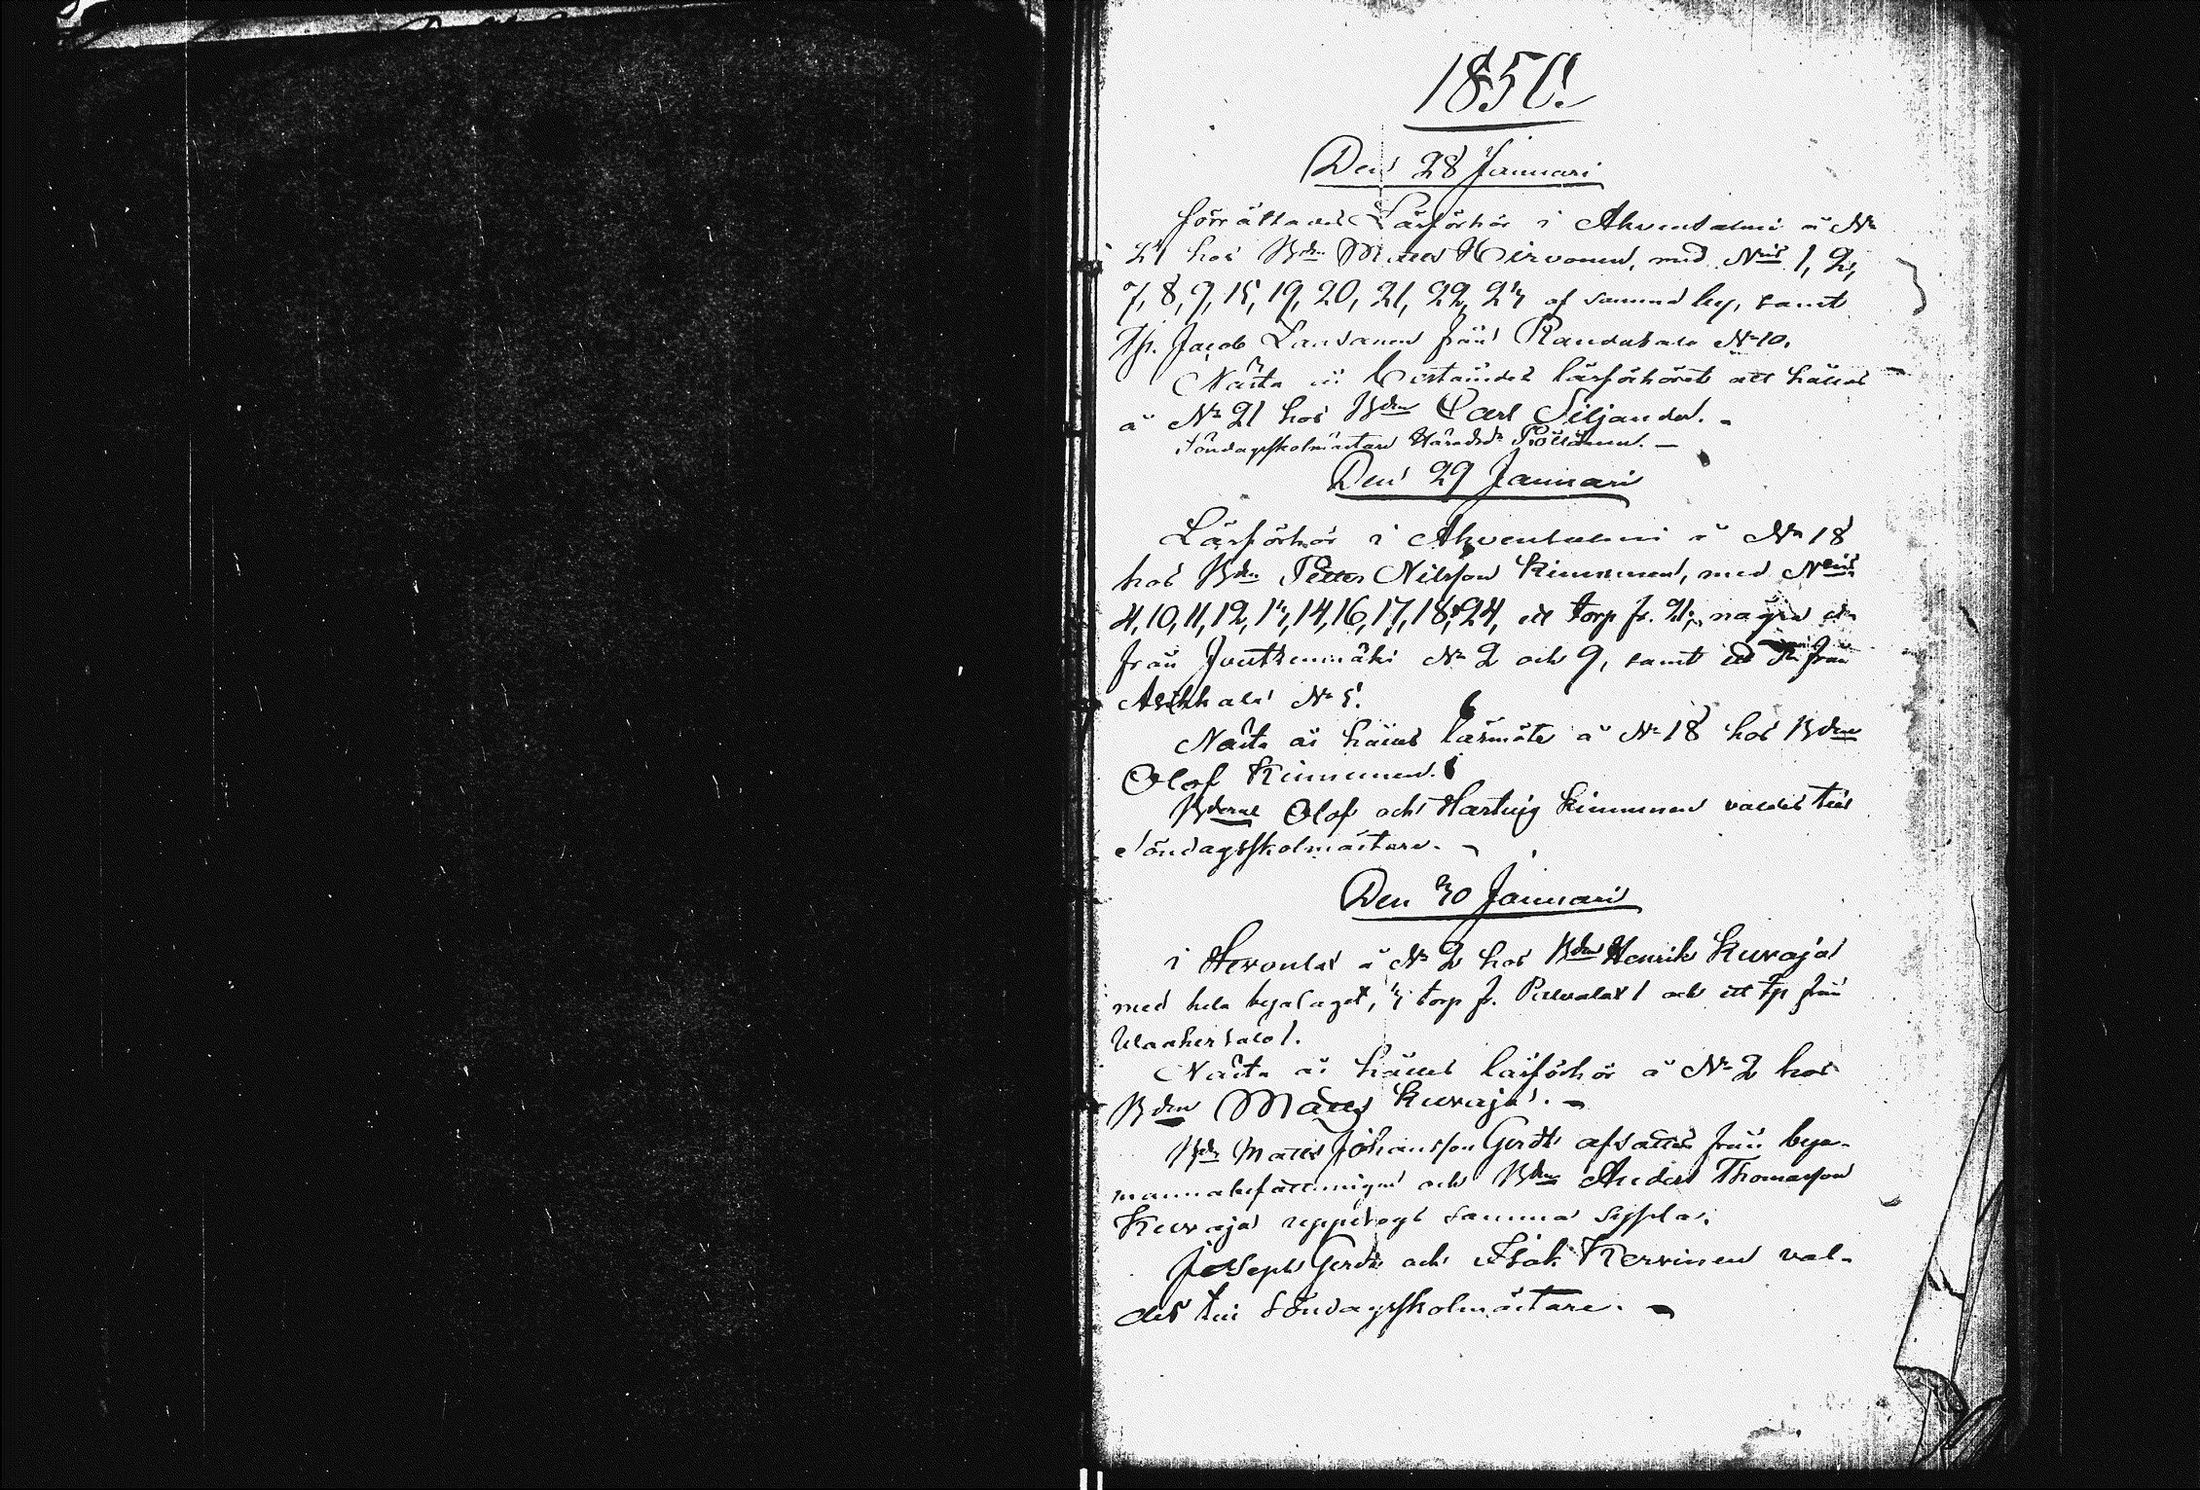 1850.
Den 28 Januari
förrättades Läsförhör i Ahvensalmi å No
21 hos Bdn Matts Hirvonen, med Nris 1, 2,
7, 8, 9, 15, 19, 20, 21, 22, 23 af samma by, samt
Tp. Jacob Laasanen från Randasalo No 10.
Nästa år bestämdes läsförhöret att hållas
å No 21 hos Bden Carl Siljander.
Söndagsskolmästare Häradsd.
Den 29 Januari
Läsförhör i Ahvensalmi å No 18
hos Bdn Petter Nilsson Kinnunen, med Nris
4, 10, 11, 12, 13, 14, 16, 17, 18, 24, ett torp fr. 21, några
från Juutienmäki No 2 och 9, samt ett från
Asikkala No 5.
Nästa år hålles läsmöte å No 18 hos Bden
Olof Kinnunen.
Bderne Olof och Hartvig Kinnunen valdes till
Söndagsskolmästare.
Den 30 Januari
i Hevonlaks å No 2 hos Bden Henrik Kuvaja
med hela byalaget, 3 torp fr. 1 och ett Tp från
1.
Nästa år hålles läsförhör å No 2 hos
Bden Matts Kuvaja.
Bdn Matts Johansson Gerdt afsattes från bya-
mannabefattningen och Bden Anders Thomasson
Kuvaja uppdrogs samma syssla.
Joseph Gerdt och Isak Kervinen val-
des till Söndagsskolmästare.